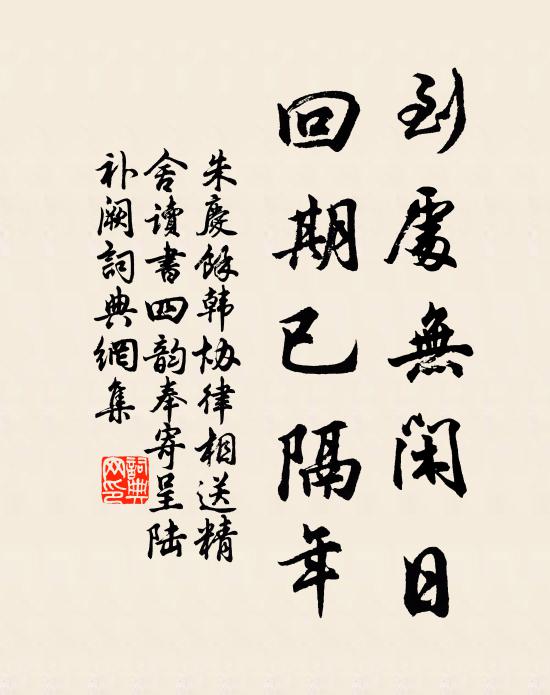 到處無閑日
回期已隔年
朱慶餘韩协律相送精
舍讀書四韵奉寄呈陆
补阙詞典網集
詞典網印